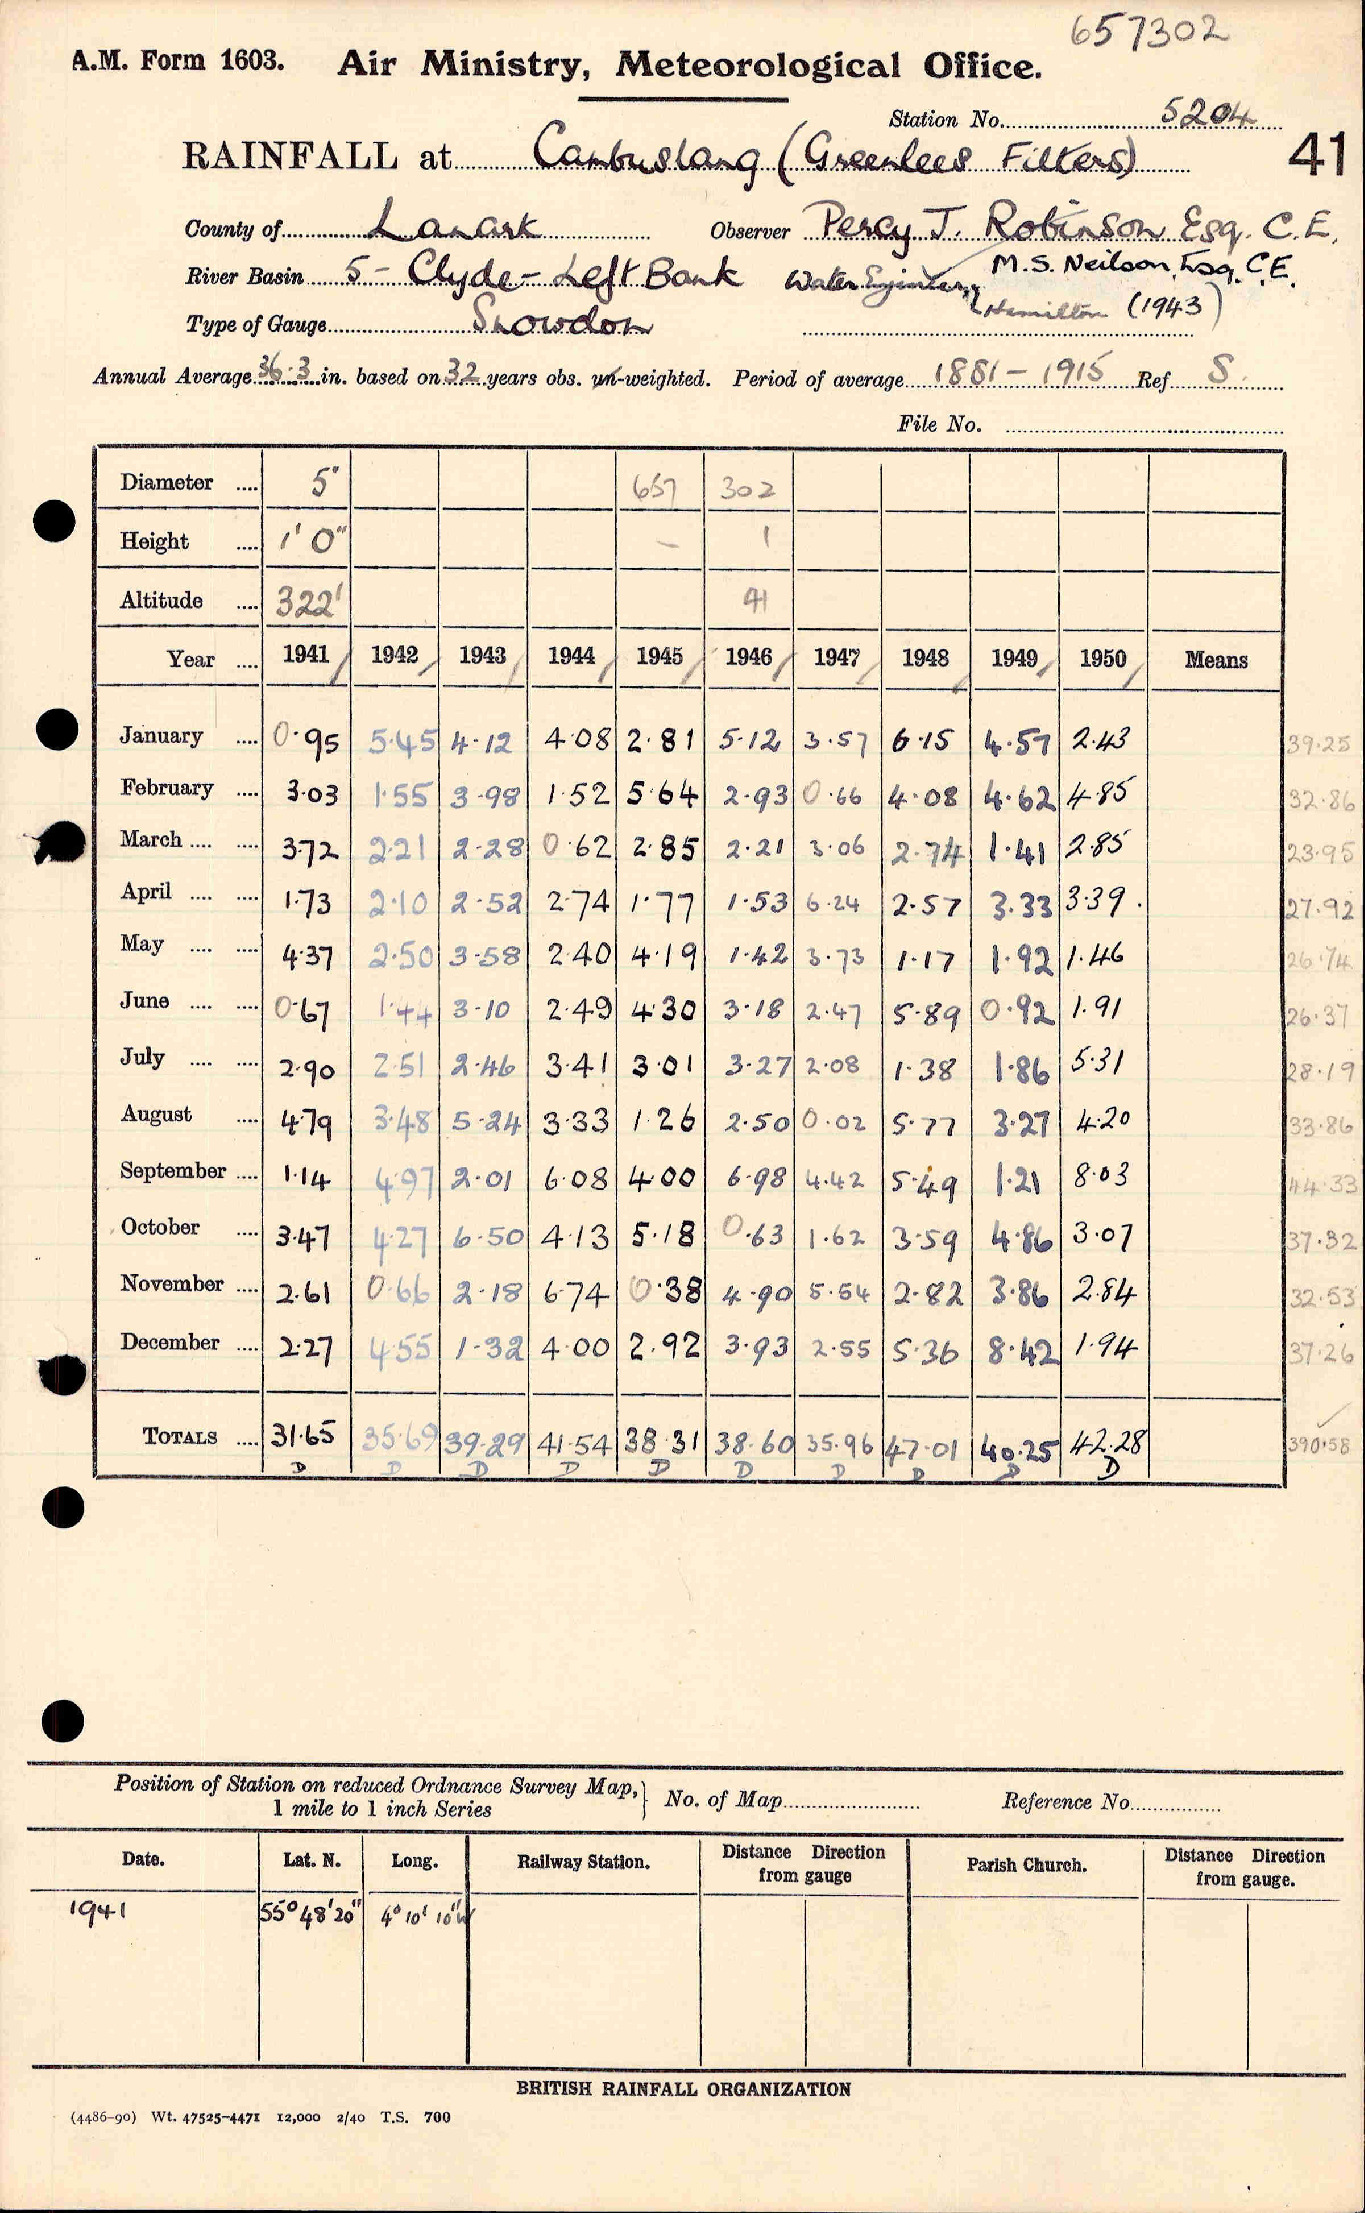 657302
A.M. Form 1603. Air Ministry, Meteorological Office.
Station No. 5204
RAINFALL at Cambuslang (Greenlees Filters) 41
County of Lanark Observer Percy J. Robinson Esq. C.E.
River Basin 5 - Clyde - Left Bank Water Engineer, M.S. Neilson, Esq. C.E.
Type of Gauge Snowdon Hamilton (1943)
Annual Average 36.3 in. based on 32 years obs. un-weighted. Period of average 1881-1915 Ref S.
File No.
Diameter .... 5" 657 302
Height .... 1' 0" - 1
Altitude .... 322' 41
Year .... 1941 1942 1943 1944 1945 1946 1947 1948 1949 1950 Means
January .... 0.95 5.45 4.12 4.08 2.81 5.12 3.57 6.15 4.57 2.43 39.25
February .... 3.03 1.55 3.98 1.52 5.64 2.93 0.66 4.08 4.62 4.85 32.86
March .... .... 3.72 2.21 2.28 0.62 2.85 2.21 3.06 2.74 1.41 2.85 23.95
April .... .... 1.73 2.10 2.52 2.74 1.77 1.53 6.24 2.57 3.33 3.39 27.92
May .... .... 4.37 2.50 3.58 2.40 4.19 1.42 3.73 1.17 1.92 1.46 26.74
June .... .... 0.67 1.44 3.10 2.49 4.30 3.18 2.47 5.89 0.92 1.91 26.37
July .... .... 2.90 2.51 2.46 3.41 3.01 3.27 2.08 1.38 1.86 5.31 28.19
August .... 4.79 3.48 5.24 3.33 1.26 2.50 0.02 5.77 3.27 4.20 33.86
September .... 1.14 4.97 2.01 6.08 4.00 6.98 4.42 5.49 1.21 8.03 44.33
October .... 3.47 4.27 6.50 4.13 5.18 0.63 1.62 3.59 4.86 3.07 37.32
November .... 2.61 0.66 2.18 6.74 0.38 4.90 5.54 2.82 3.86 2.84 32.53
December .... 2.27 4.55 1.32 4.00 2.92 3.93 2.55 5.36 8.42 1.94 37.26
TOTALS .... 31.65 35.69 39.29 41.54 38.31 38.60 35.96 47.01 40.25 42.28 390.58
D D D D D D D D D D
Position of Station on reduced Ordnance Survey Map, 1 mile to 1 inch Series } No. of Map Reference No.
Date. Lat. N. Long. Railway Station. Distance Direction from gauge Parish Church. Distance Direction from gauge.
1941 55° 48' 20" 4° 10' 10" W
BRITISH RAINFALL ORGANIZATION
(4486-90) Wt. 47525-4471 12,000 2/40 T.S. 700